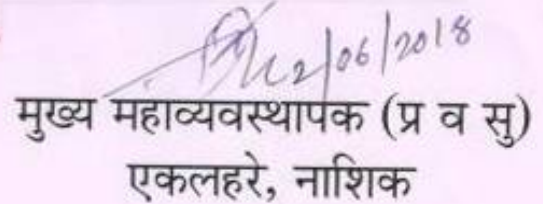 2/06/2018
मुख्य महाव्यवस्थापक (प्र व सु)
एकलहरे, नाशिक